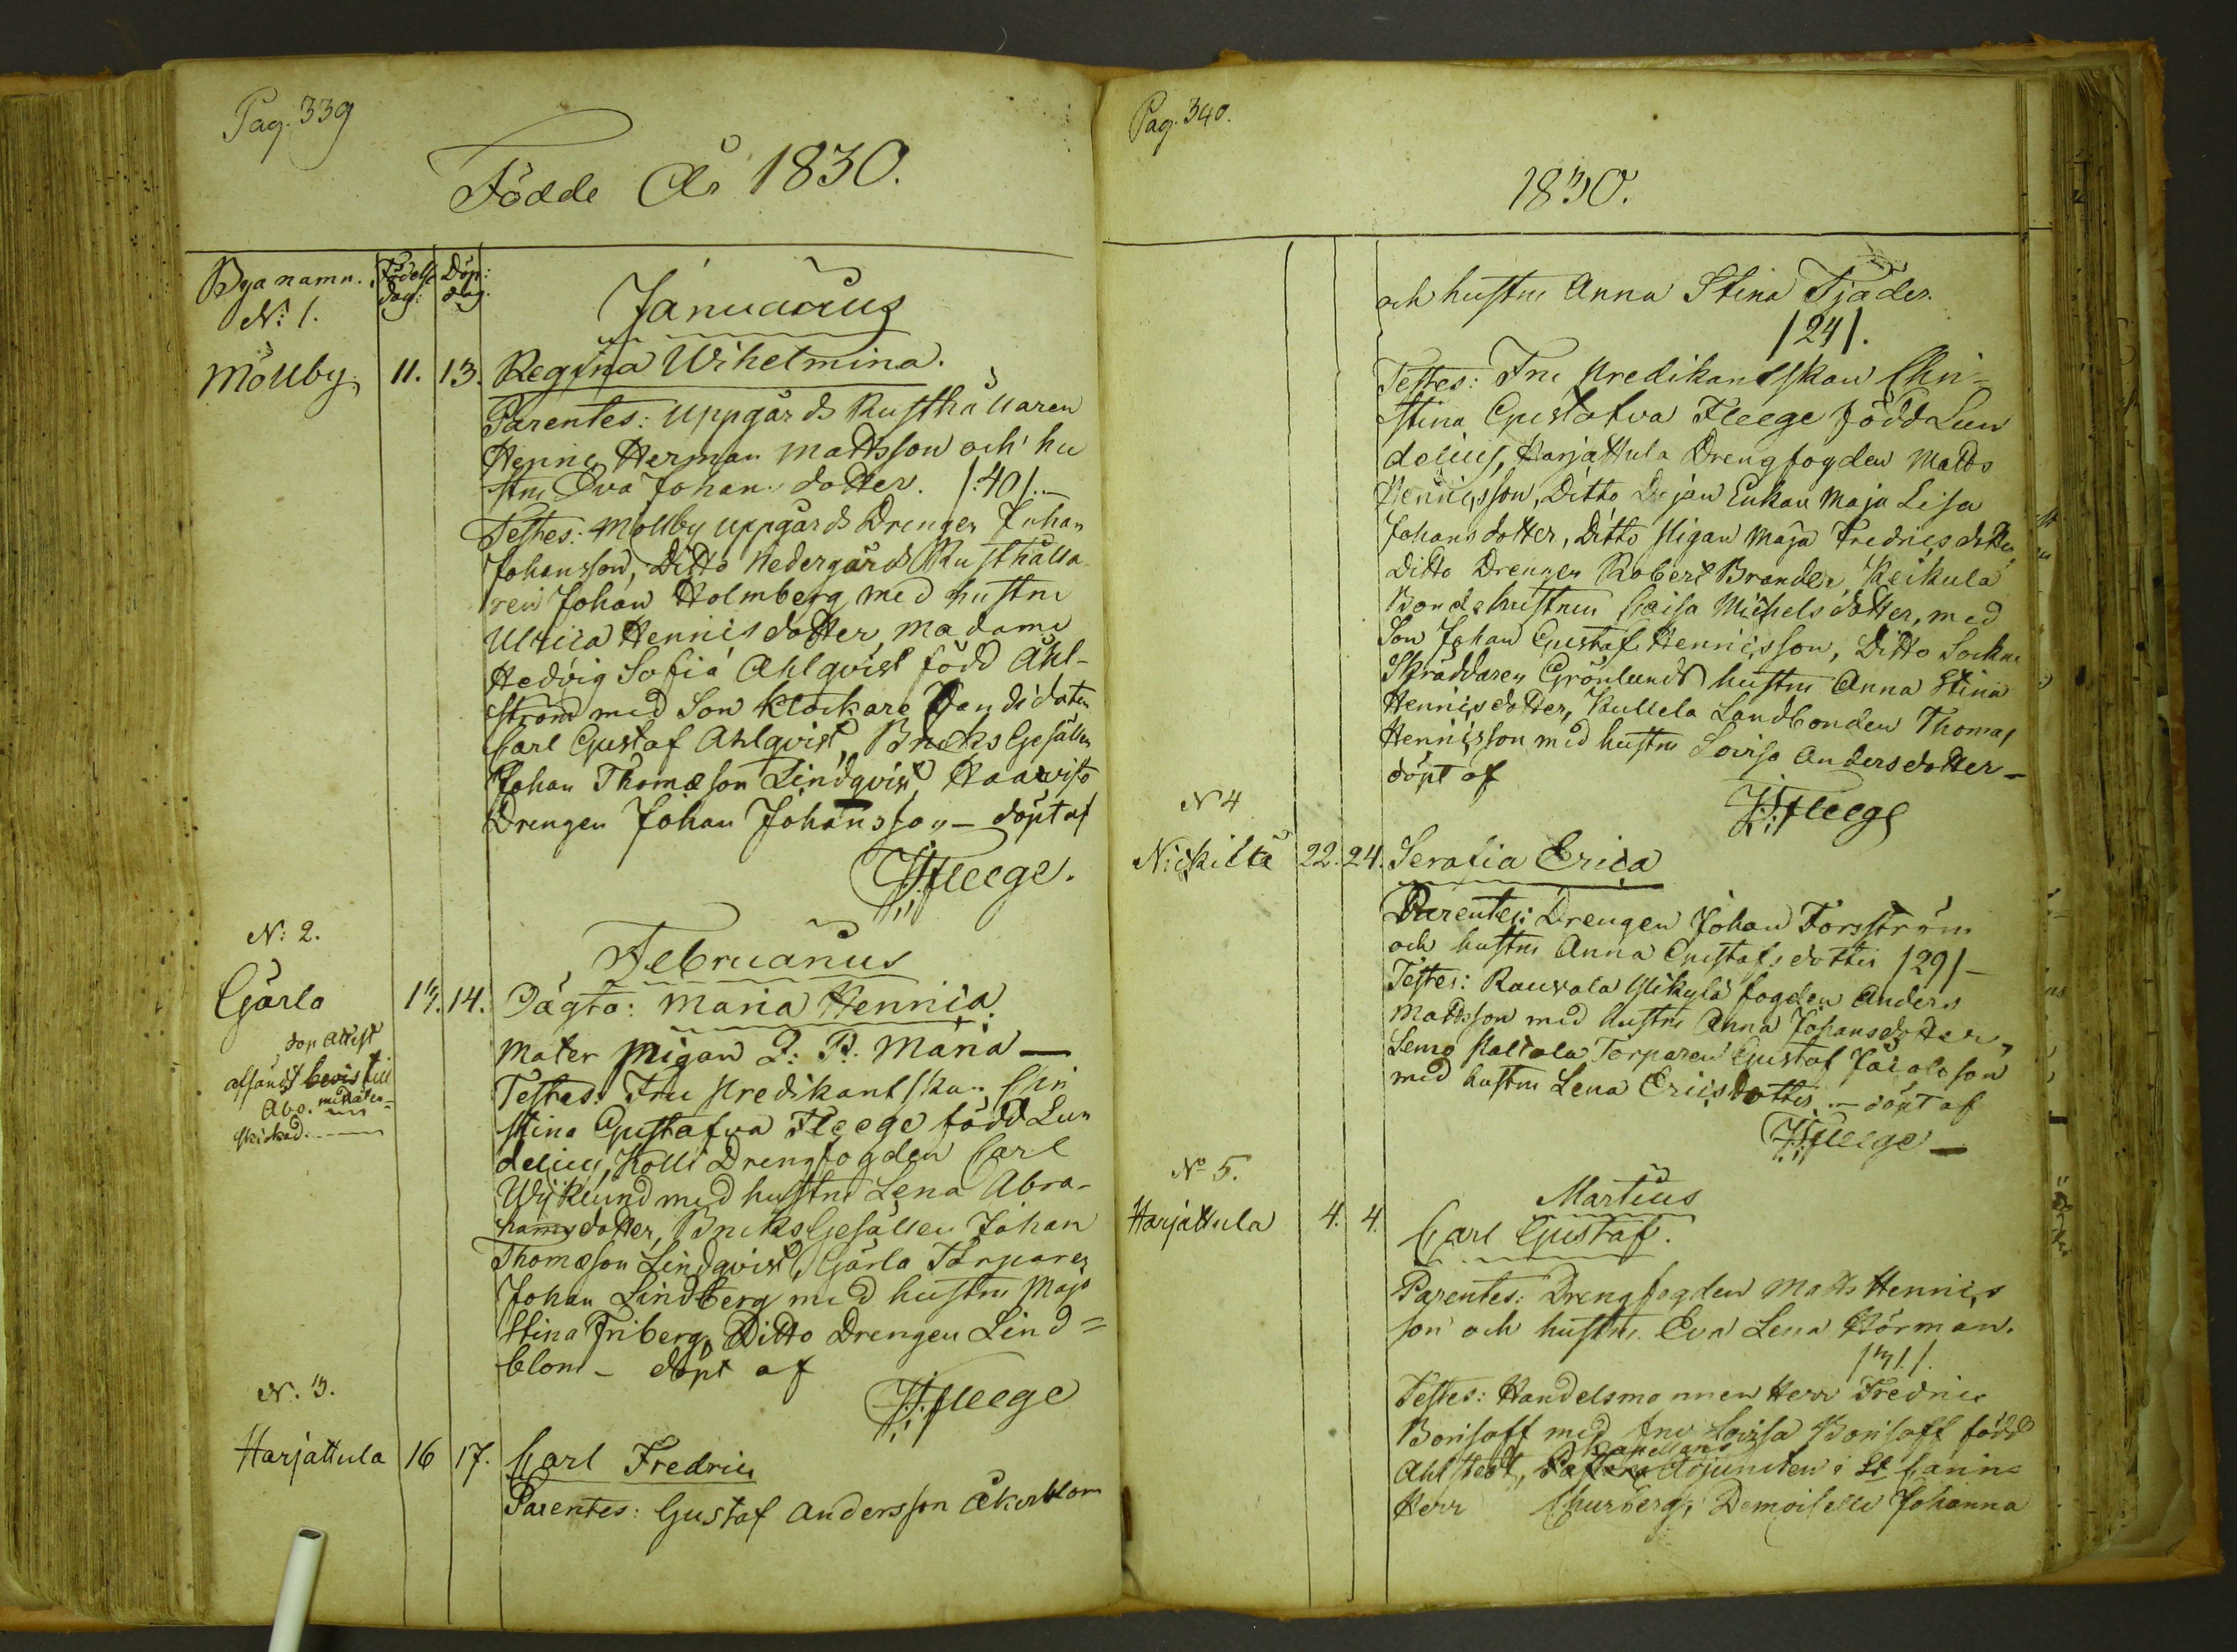 Pag. 339
Födde År 1830.
Byanamn. Födelse dag: Döp: dag.
N: 1.
Januarius
Möllby 11. 13. Regina Wihelmina.
Parentes: Uppgårds Rusthållaren
Henric Herman Mattsson och hu
stru Eva Johansdotter. /:40/.–
Testes: Möllby Uppgårds Drengen Johan
Johansson, Ditto Nedergårds Rusthålla
ren Johan Holmberg med hustru
Ulrica Henricsdotter, Madame
Hedvig Sofia Ahlqvist född Åhl-
ström med Son Klockare Candidaten
Carl Gustaf Ahlqvist, Bruks Gesällen
Johan Thomæson Lindqvist,
Drengen Johan Johansson – döpt af
Fleege.
N: 2.
Februarius
Gärla 13. 14. Oägta: Maria Henrica.
Mater Pigan Maria –
afsändt bevis till
Åbo.
skickad.
Testes: Fru Predikantskan Chri
stina Gustafva Fleege född Lun
delius, Kolli Drengfogden Carl
Wiklund med hustru Lena Abra-
hamsdotter, Bruks Gesällen Johan
Thomæson Lindqvist, Gärla Torparen
Johan Lindberg med hustru Maja
Stina Friberg, Ditto Drengen Lind=
blom – döpt af
Fleege
N. 3.
Harjattula 16 17. Carl Fredric
Parentes: Gustaf Andersson Åkerblom
Pag. 340.
1830.
och hustru Anna Stina Tjäder.
/24/.
Testes: Fru Predikantskan Chri-
stina Gustafva Fleege född Lun
delius, Harjattula Drengfogden Matts
Henricsson, Ditto Dejan Enkan Maja Lisa
Johansdotter, Ditto Pigan Maja Fredricsdotter
Ditto Drengen Robert Brander, Keikula
Bondehustrun Caisa Michelsdotter, med
Son Johan Gustaf Henricsson, Ditto Sockne
Skräddaren Grönlunds hustru Anna Stina
Henricsdotter, Kullela Landbonden Thomas
Henricsson med hustru Lovisa Andersdotter –
döpt af
Fleege
N 4
Nickilla 22. 24. Serafia Erica
Parentes: Drengen Johan Forsström
och hustru Anna Gustafsdotter /29/ –
Testes: Rauvala fogden Anders
Mattsson med hustru Anna Johansdotter,
Lemo Torparen Gustaf Jacobsson
med hustru Lena Ericsdotter – döpt af
Fleege –
No 5.
Martius
Harjattula 4. 4. Carl Gustaf.
Parentes: Drengfogden Matts Henrics
son och hustru Eva Lena Hörman.
/31/.
Testes: Handelsmannen Herr Fredric
Borisoff med Fru Lovisa Borisoff född
Ahlstedt, Kapellans Adjuncten i St Carins
Herr Churberg, Demoiselle Johanna